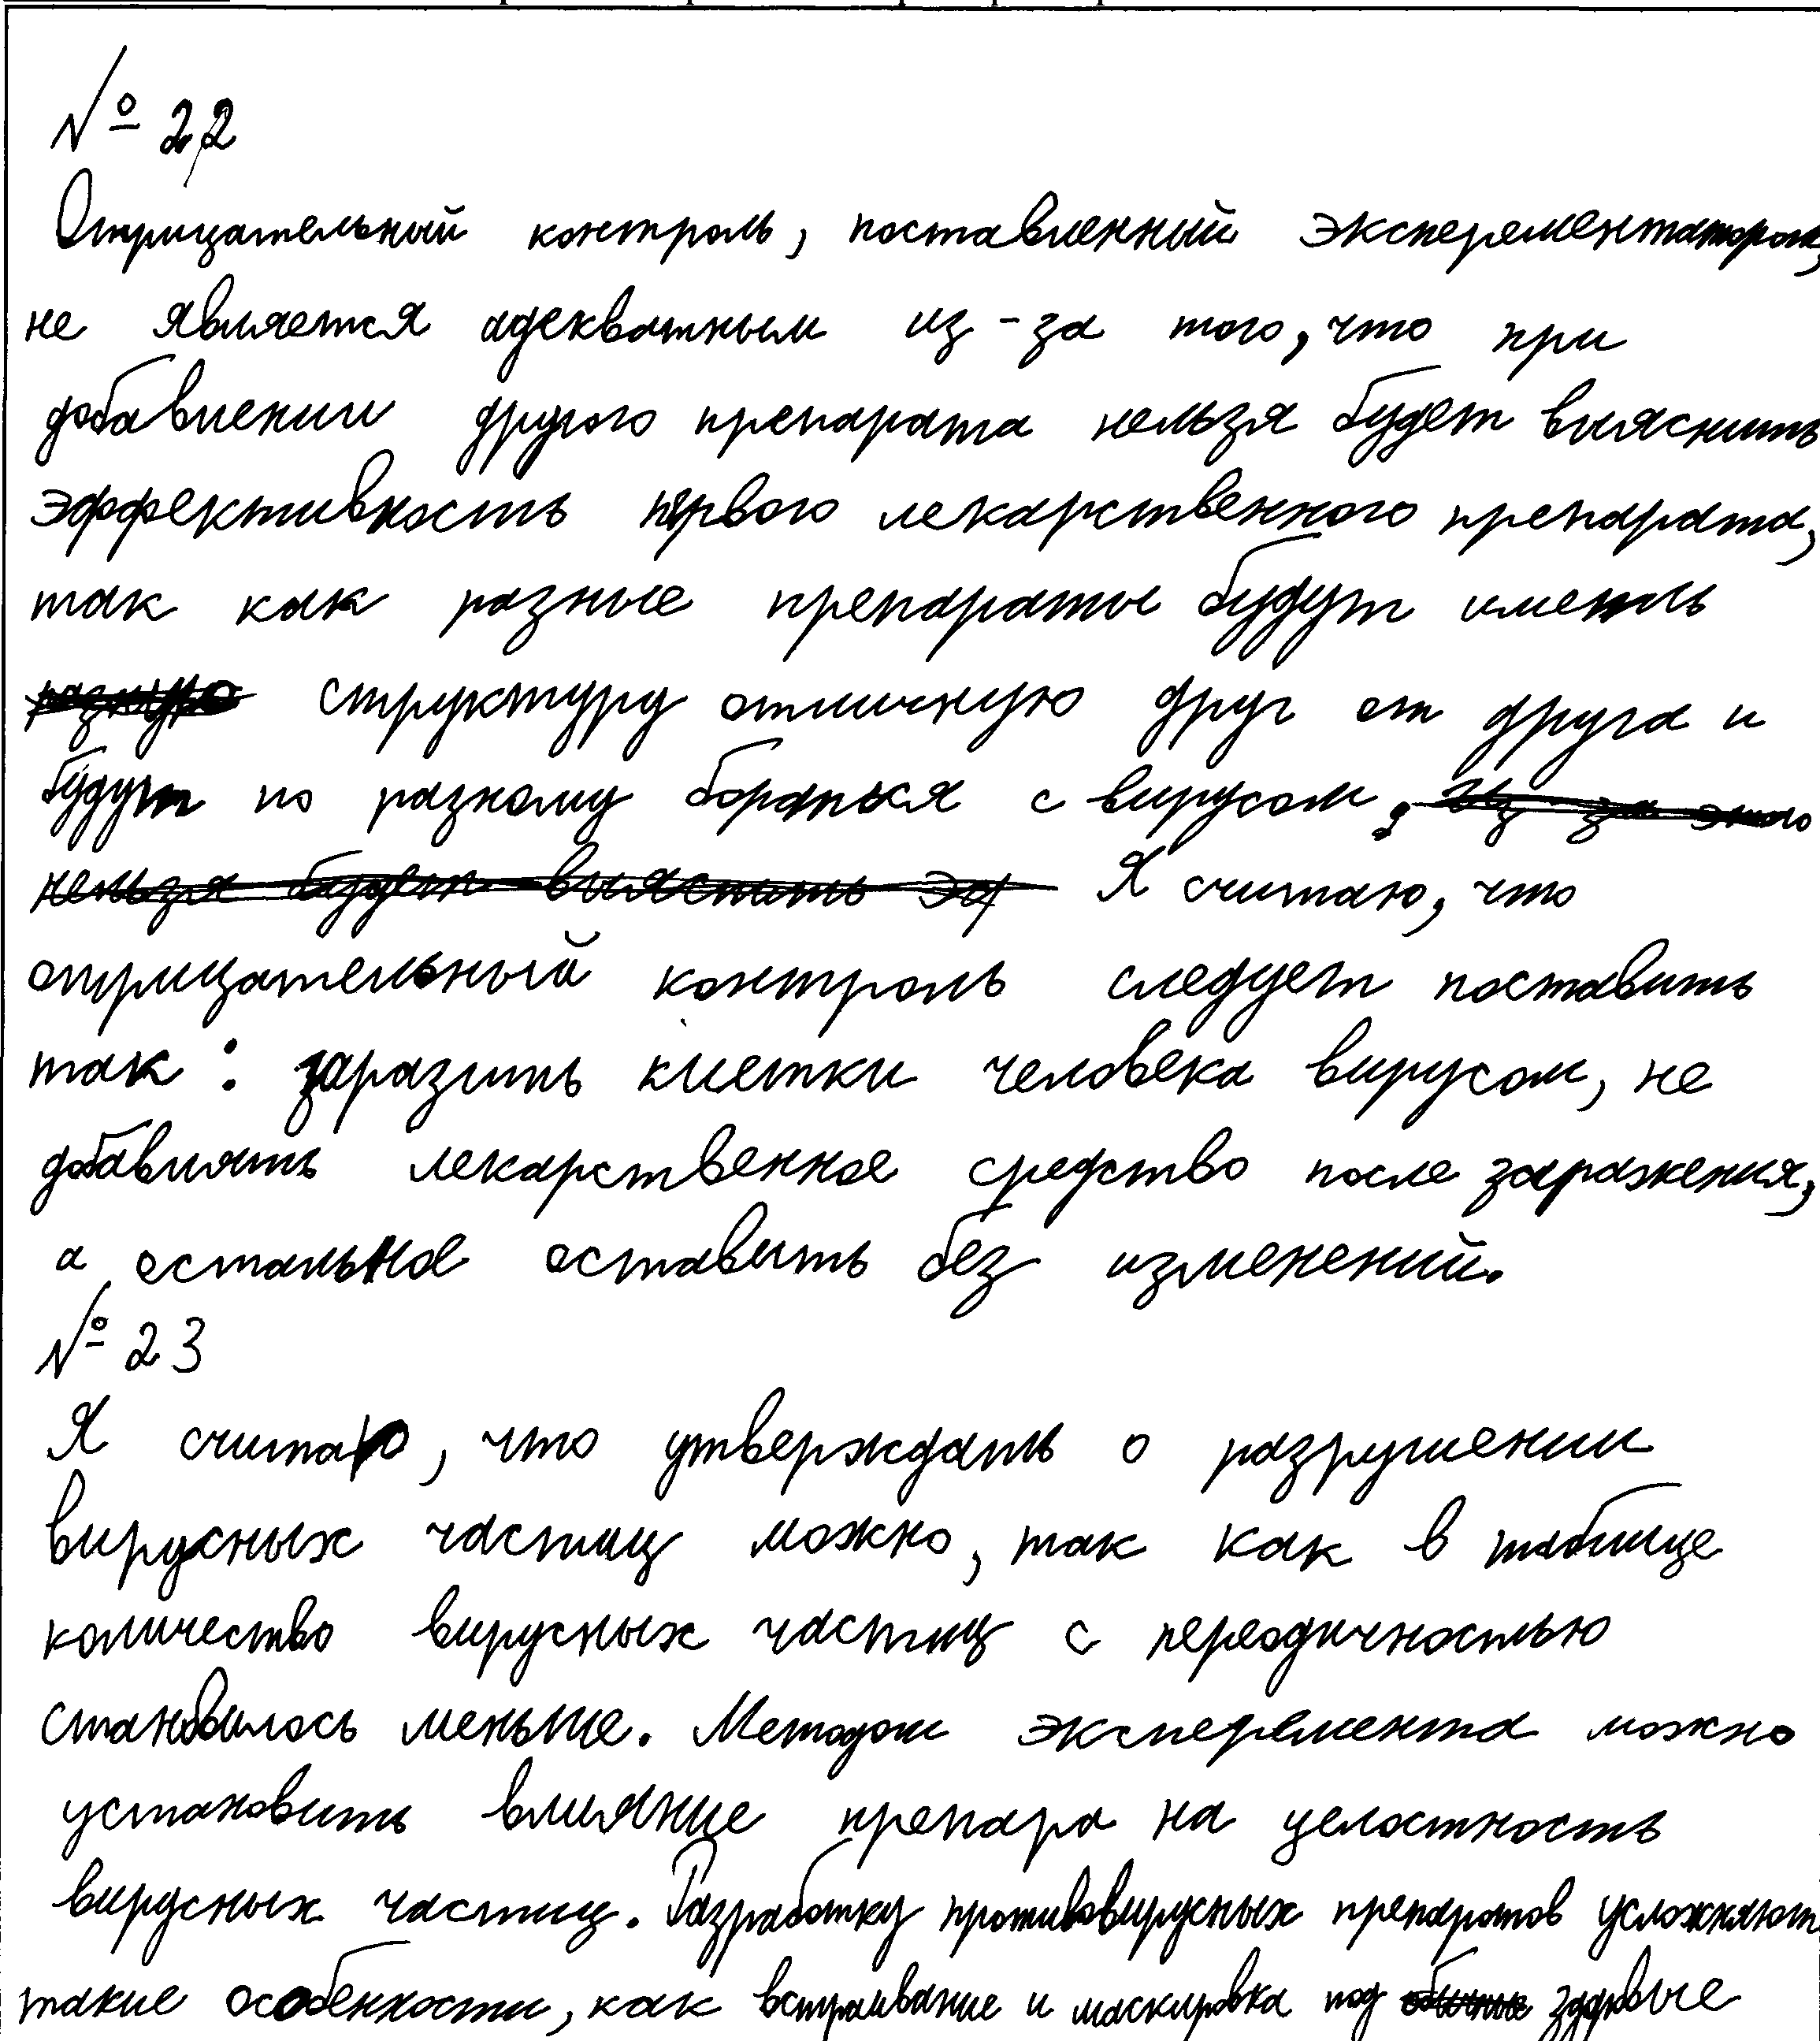 № 22
Отрицательный контроль, поставленный эксперементатором,
не является адекватным из-за того, что при
добавлении другого препарата нельзя будет выяснить
эффективность первого лекарственного препарата,
так как разные препараты будут иметь
разную структуру отличную друг от друга и
будут по разному бораться с вирусом. Из-за этого
нельзя будет выяснить эф Я считаю, что
отрицательный контроль следует поставить
так: заразить клетки человека вирусом, не
добавлять лекарственное средство после заражения,
а остальное оставить без изменений.
№ 23
Я считаю, что утверждать о разрушении
вирусных частиц можно, так как в таблице
количество вирусных частиц с переодичностью
становилось меньше. Методом эксперемента можно
установить влияние препара на целостность
вирусных частиц. Разработку противовирусных препаратов усложняют
такие особенности, как встраивание и маскировка под обычные здоровые